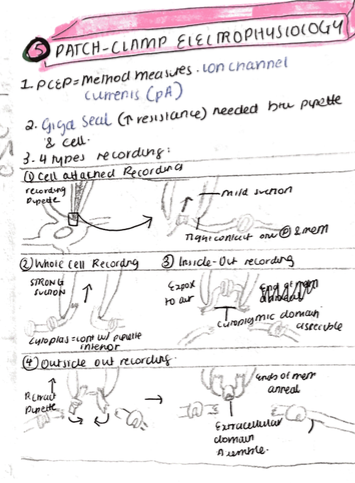 ⑤ PATCH-CLAMP ELECTROPHYSIOLOGY
1. PCEP = Method measures ion channel
currents (pA)
2. Giga Seal (↑ resistance) needed btw pipette
& cell.
3. 4 types recording:
① Cell attached Recording
recording
pipette
mild suction
Tight contact btw & mem
② Whole Cell Recording
③ Inside-Out recording
STRONG
SUCTION
Expose
to air
cytoplasmic domain
accessible
cytoplas = cont w/ pipette
interior
④ Outside out recording.
Retract
pipette
Ends of mem
anneal
Extracellular
domain